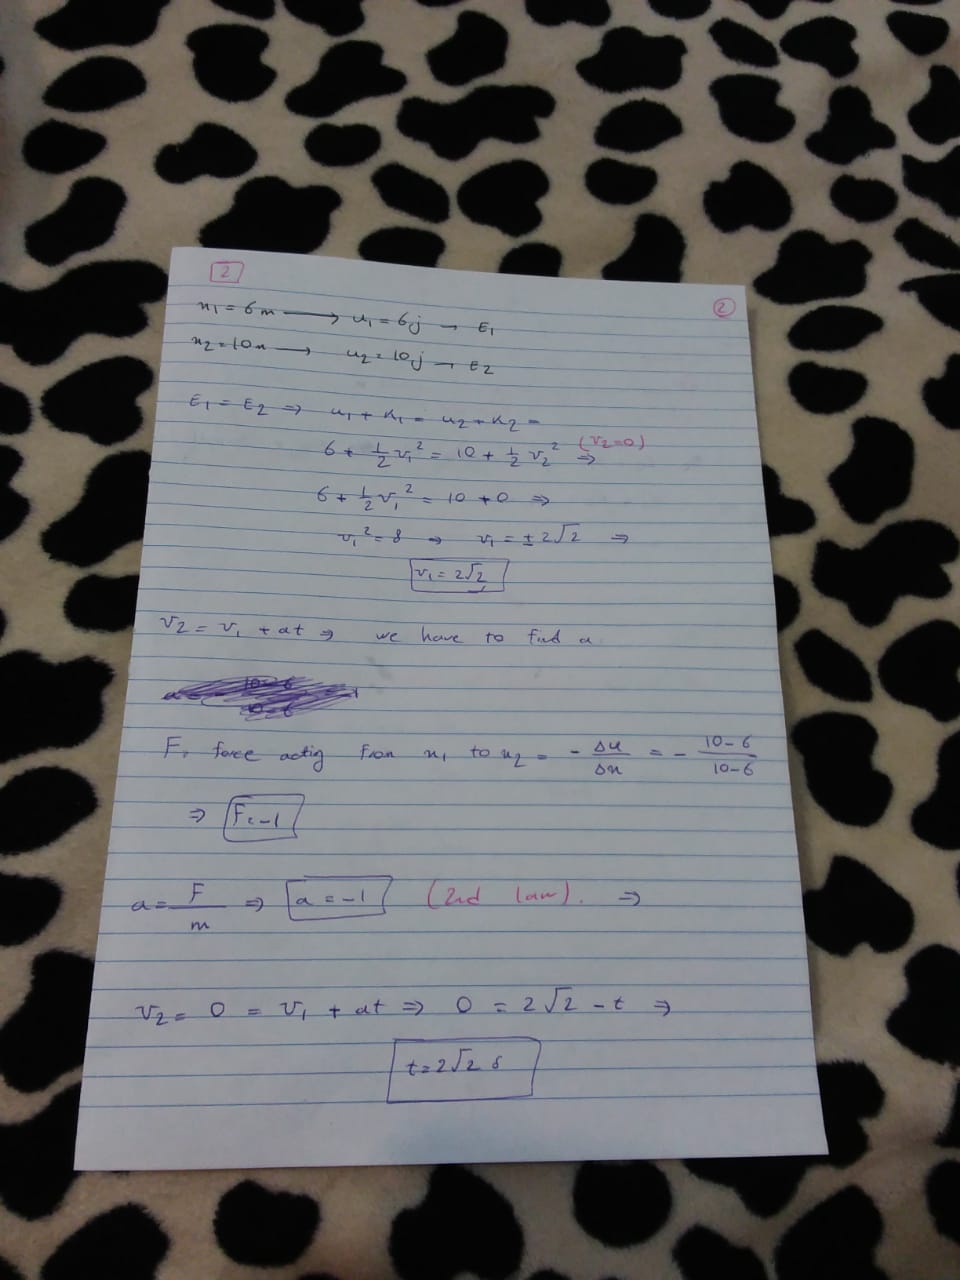 2
2
x1 = 6m → u1 = 6j → E1
x2 = 10m → u2 = 10j → E2
E1 = E2 ⇒ u1 + K1 = u2 + K2 =
(v2=0)
6 + 1/2 v1² = 10 + 1/2 v2² ⇒
6 + 1/2 v1² = 10 + 0 ⇒
v1² = 8 ⇒ v1 = ± 2√2 ⇒
v1 = 2√2
v2 = v1 + at ⇒ we have to find a
F, force actig from x1 to x2 = - Δu/Δx = - 10-6/10-6
⇒ F = -1
a = F/m ⇒ a = -1 (2nd law). ⇒
v2 = 0 = v1 + at ⇒ 0 = 2√2 - t ⇒
t = 2√2 s